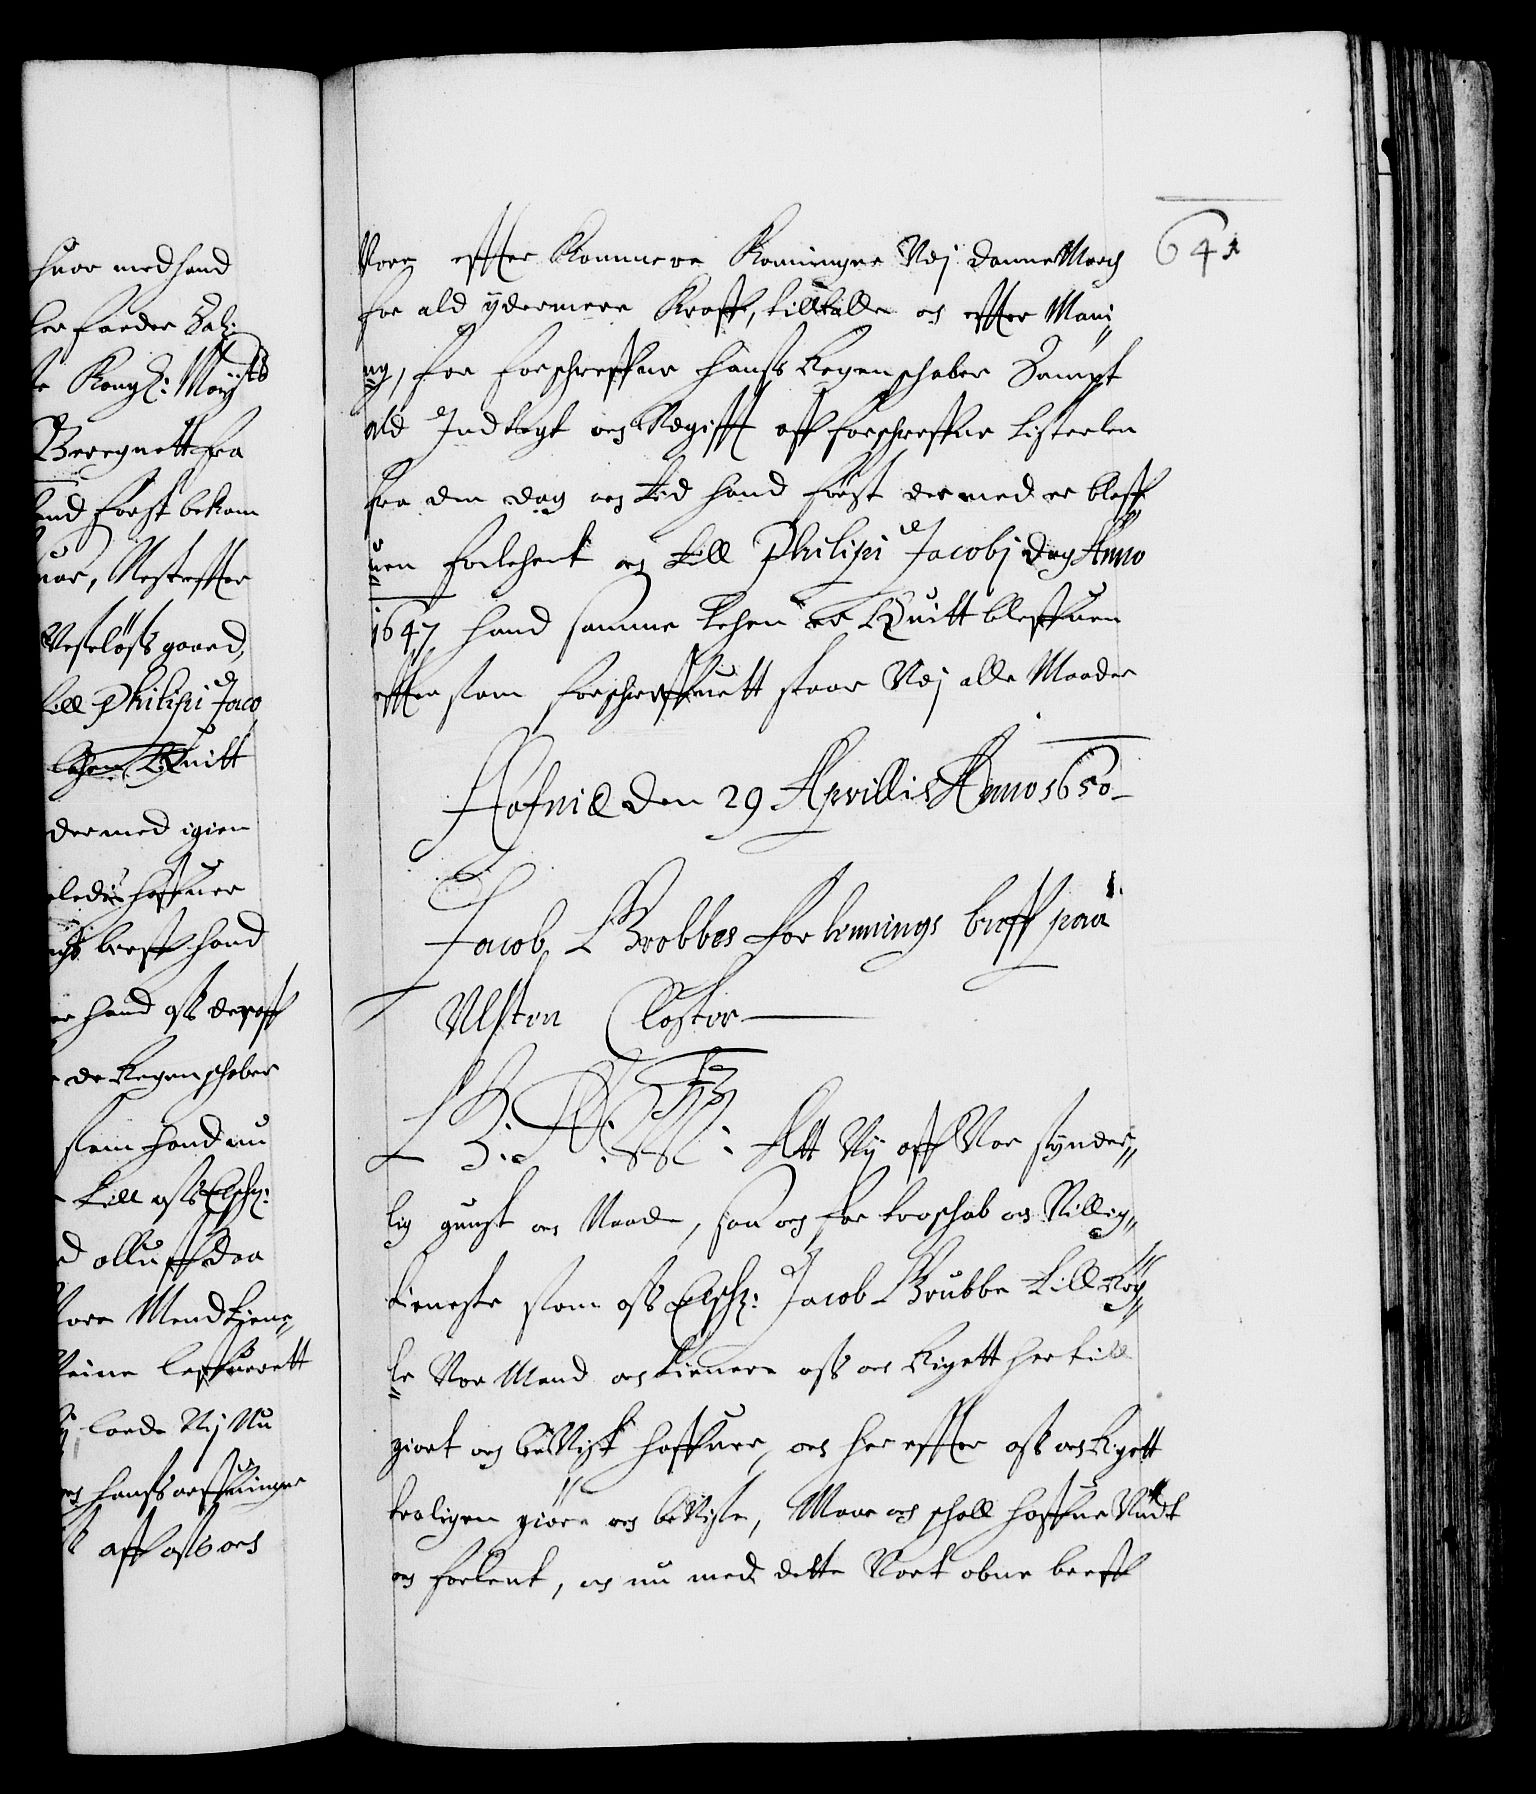 huor med hand
ler faeder Sal:
te Kongl: Maytts
Beregnett fra
hand først bekom
uar, Nest effter
Vesløfs gaard,
till Philipi Jaco
lehen Quitt
der med igien
eledis haffuer
breff hand
er hand oss deraff
de Regenschaber
som hand nu
till oss Elsch:
d alluff daa
Vore Mend tiene
leffuerett
lode Vij Nu
och hanss arffuinger
aff oss och
641
Vore effter Kommere Koninger Udj DanneMarch
for ald ydermere Kraff, tilltalle och effter Mani
ng, for forschreffne hanss Regenschaber Sampt
ald Indtegt och Udgifft aff forschreffne Listerlen
fra den dag och tid hand først der med er bleff
uen forlehent och till Philipi Jacobj dag Anno
1647 hand samme lehen er Quitt bleffuen
effter som forschreffuett staar Udj alle Maader
Hafniæ den 29 Aprillis Anno 1650
Jacob Grubbes Forlennings breff paa
Ulsten Closter
G: A: W: Att Vij aff Vor synder
lig gunst och Naade, saa och for troschab och Villig
tieneste som oss Elsch: Jacob Grubbe till Køg
le Vor Mand och tienere oss och Rigett her till
giort och bevist haffuer, och her effter oss och Rigett
troligen giøre och beviise, Maa och schall haffue Undt
och forlent, och nu med dette Vort obne breff